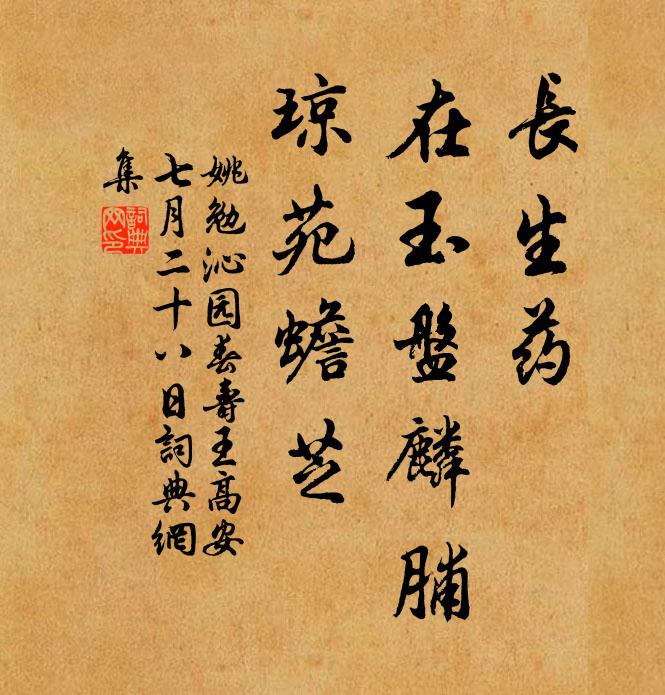 長生药
在玉盤麟脯
琼苑蟾芝
姚勉沁园春壽王高安
七月二十八日詞典網
集
詞典
网印